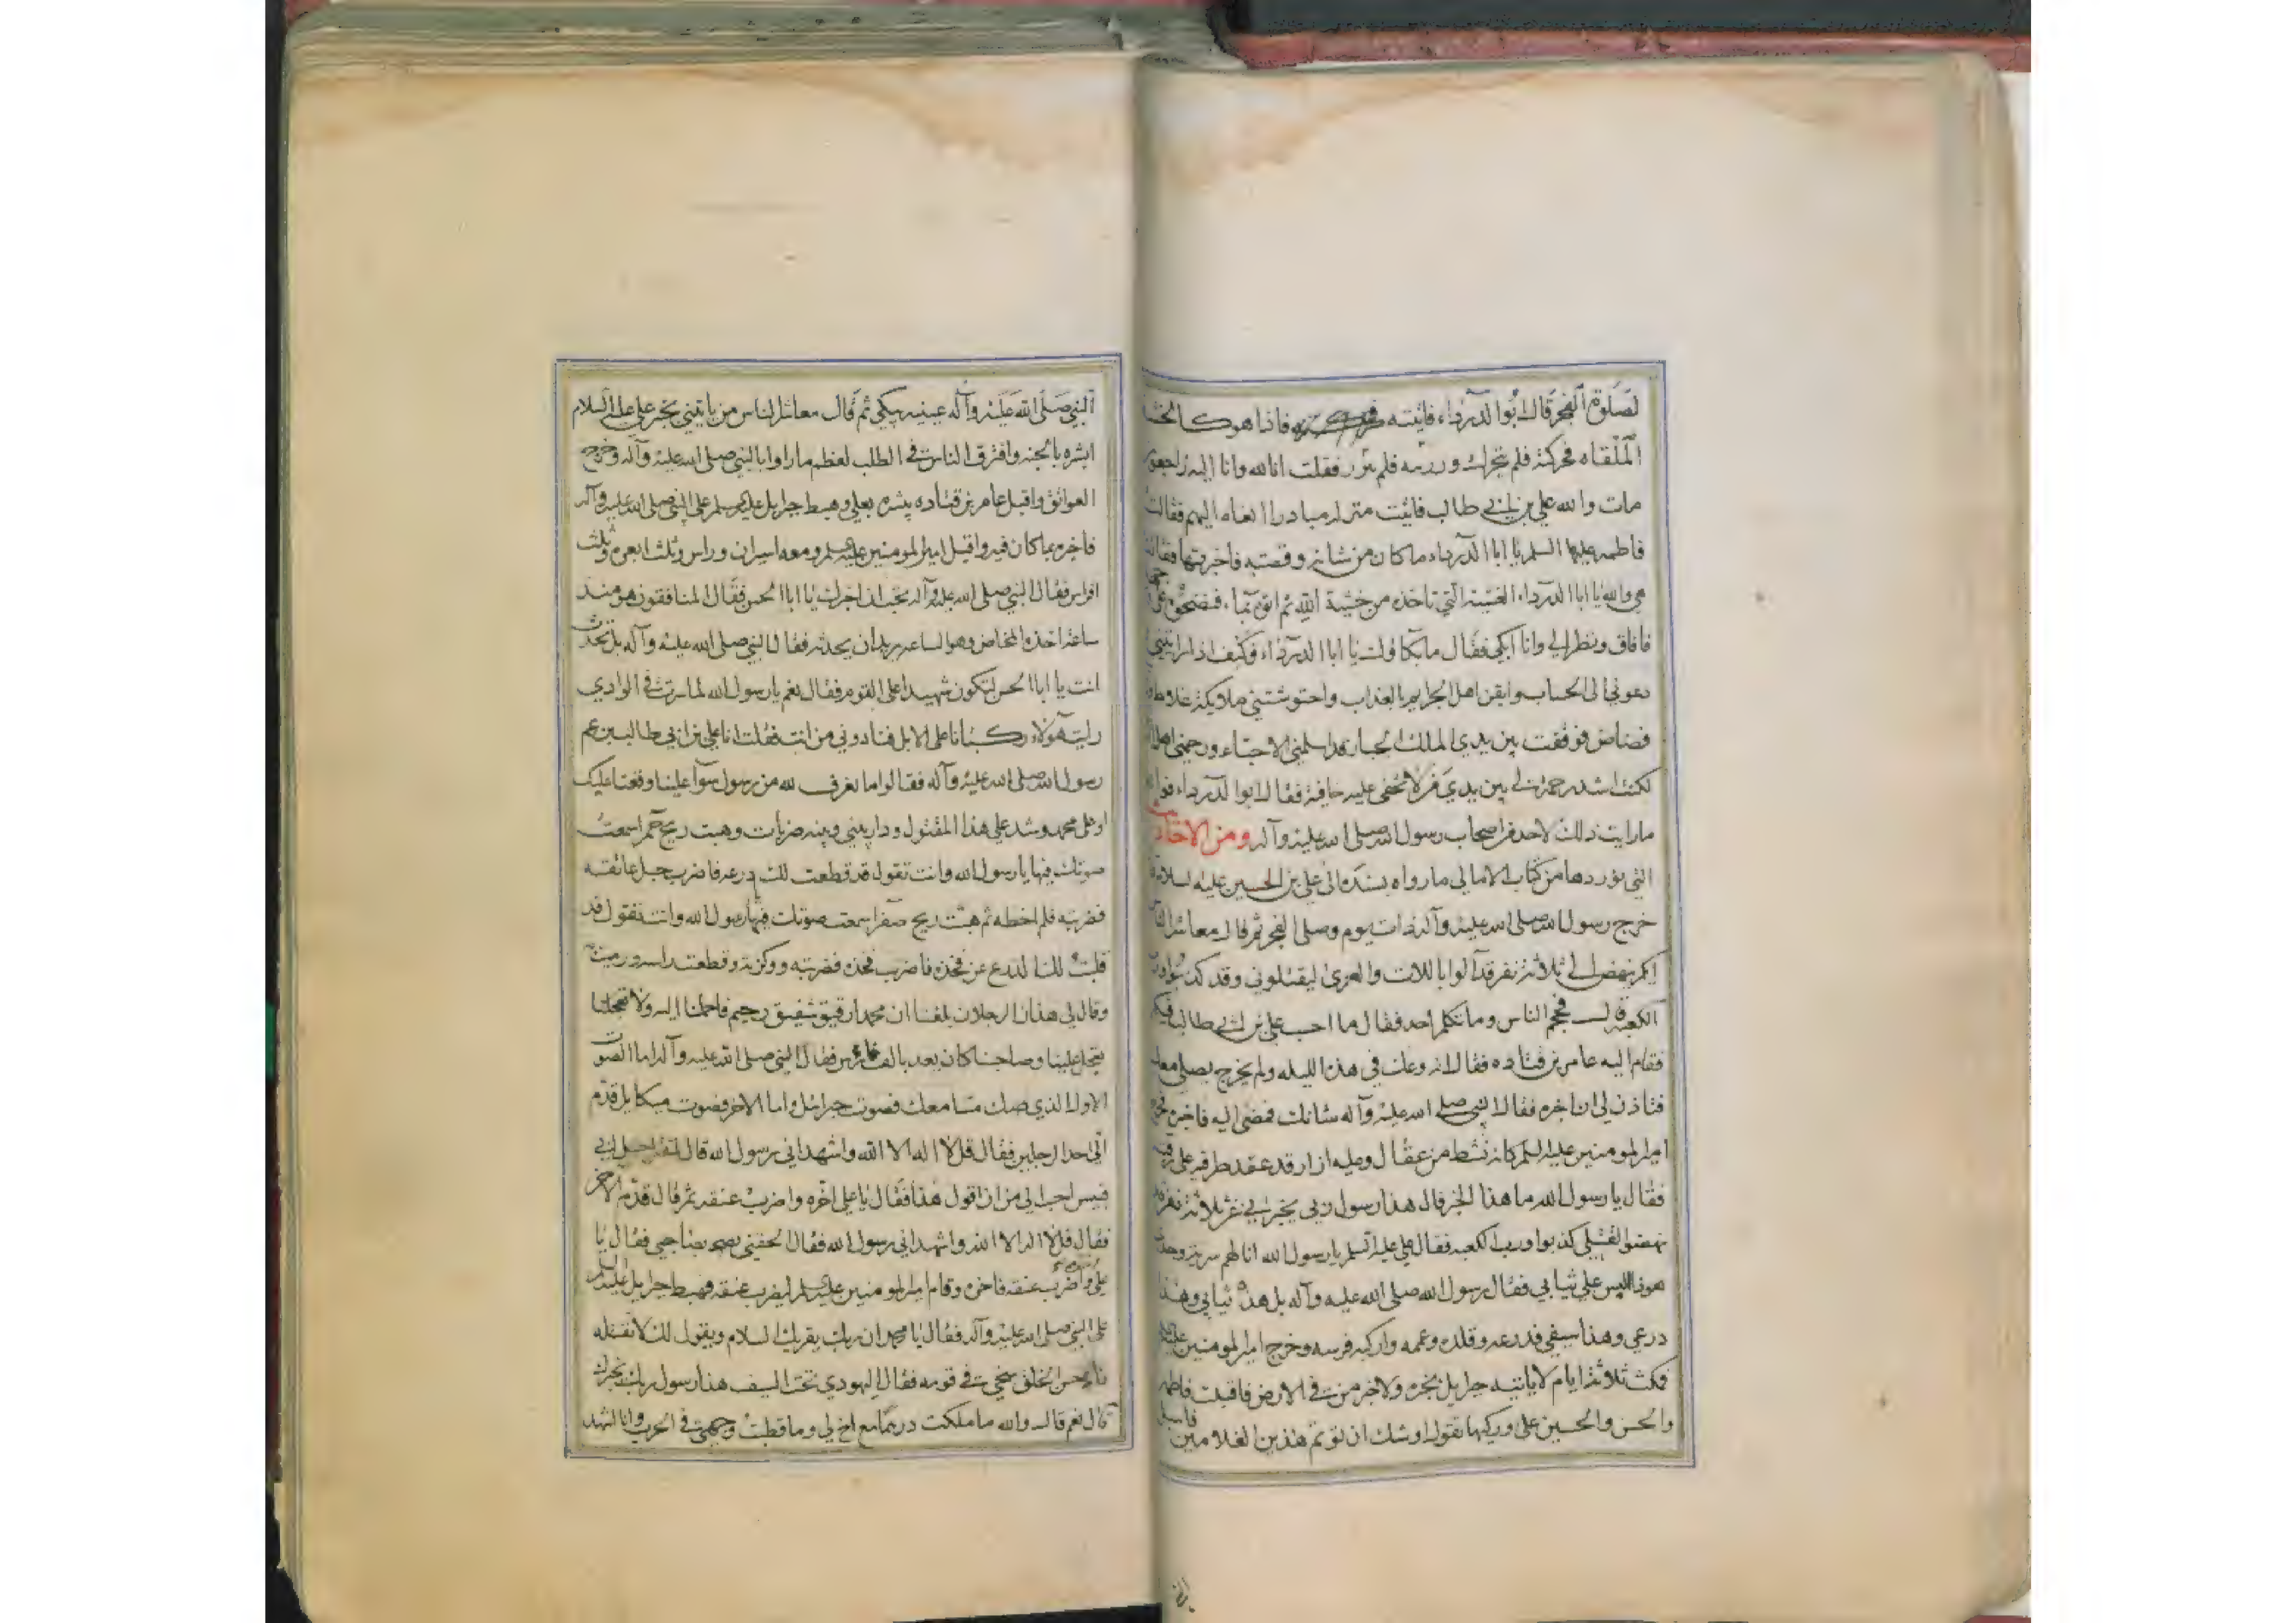 لصلوة الفجر قال ابو الدرداء فاتيته فاذا هو كالخشبة
الملقاه فحركته فلم يتحرك وزويته فلم ينزو فقلت انا لله وانا اليه راجعون
مات والله علي بن ابي طالب فاتيت منزله مبادرا انعاه اليهم فقالت
فاطمه عليها السلم يا ابا الدرداء ما كان من شانه وقصته فاخبرتها فقالت
هي والله يا ابا الدرداء الغشية التي تاخذه من خشية الله ثم اتوه بماء فنضحوه على وجهه
فافاق ونظر الي وانا ابكي فقال ما بكاؤك يا ابا الدرداء فكيف اذا رايتني
دعوني الى الحساب وايقن اهل الجرايم بالعذاب واحتوشتني ملايكة غلاظ
فضاض فوقفت بين يدي الملك الجبار قد اسلمني الاحباء ورحمني اهل
لكنت اشد رحمة لي بين يدي من لا تخفى عليه خافية فقال ابو الدرداء فوالله
ما رايت ذلك لاحد من اصحاب رسول الله صلى الله عليه وآله ومن الاحاديث
التي نوردها من كتاب الامالي ما رواه بسنده الى علي بن الحسين عليه السلام
خرج رسول الله صلى الله عليه وآله ذات يوم وصلى الفجر ثم قال معاشر الناس
ايكم ينهض الى ثلاثة نفر قد آلوا باللات والعزى ليقتلوني وقد كذبوا ورب
الكعبة قال فاحجم الناس وما تكلم احد فقال ما احسب علي بن ابي طالب فيكم
فقام اليه عامر بن قتاده فقال انه وعك في هذه الليله ولم يخرج يصلي معك
فتاذن لي ان اخبره فقال النبي صلى الله عليه وآله شانك فمضى اليه فاخبره فخرج
امير المومنين عليه السلم كانه نشط من عقال وعليه ازار قد عقد طرفيه على رقبته
فقال يا رسول الله ما هذا الخبر قال هذا رسول ربي يخبرني عن ثلاثة نفر قد
نهضوا لقتلي كذبوا ورب الكعبه فقال علي عليه السلم يا رسول الله انا لهم سرية وحدي
هوذا البس علي ثيابي فقال رسول الله صلى الله عليه وآله بل هذه ثيابي وهذا
درعي وهذا سيفي فدرعه وقلده وعممه واركبه فرسه وخرج امير المومنين عليه السلم
فمكث ثلاثة ايام لا ياتيه جبرايل بخبره ولا خبر من في الارض فاقبلت فاطمه
والحسن والحسين على وركيها تقول اوشك ان يوتم هذين الغلامين فاسبل
النبي صلى الله عليه وآله عينيه يبكي ثم قال معاشر الناس من ياتيني بخبر علي عليه السلام
ابشره بالجنه وافترق الناس في الطلب لعظم ما راوا بالنبي صلى الله عليه وآله وخرج
العواتق واقبل عامر بن قتاده يبشره بعلي وهبط جبرايل عليه السلم على النبي صلى الله عليه وآله
فاخبره بما كان فيه واقبل امير المومنين عليه السلم ومعه اسيران وراس وثلث ابعره وثلث
افراس فقال النبي صلى الله عليه وآله تحب ان اخبرك يا ابا الحسن فقال المنافقون هو منذ
ساعة اخذه المخاض وهو الساعه يريد ان يحدثه فقال النبي صلى الله عليه وآله بل تحدث
انت يا ابا الحسن لتكون شهيدا على القوم فقال نعم يا رسول الله لما سرت في الوادي
رايت هولاء ركبانا على الابل فنادوني من انت فقلت انا علي بن ابي طالب بن عم
رسول الله صلى الله عليه وآله فقالوا ما نعرف لله من رسول سوآ علينا وقعنا عليك
او على محمد وشد علي هذا المقتول ودار بيني وبينه ضربات وهبت ريح حمرا سمعت
صوتك فيها يا رسول الله وانت تقول قد قطعت لك درعه فاضرب حبل عاتقه
فضربته فلم اخطه ثم هبت ريح صفرا سمعت صوتك فيها يا رسول الله وانت تقول قد
قلبت لك الدرع عن فخذه فاضرب فخذه فضربته ووكزته وقطعت راسه ورميته
وقال لي هذان الرجلان بلغنا ان محمدا رقيق شفيق رحيم فاحملنا اليه ولا تعجل
علينا وصاحبنا كان يعد بالف فارس فقال النبي صلى الله عليه وآله اما الصوت
الاول الذي صك مسامعك فصوت جبرائيل واما الاخر فصوت ميكايل قدم
الي احد الرجلين فقال قل لا اله الا الله واشهد اني رسول الله قال لنقل جبل ابي
قبيس احب الي من ان اقول هذا فقال يا علي اخره واضرب عنقه ثم قال قدم الاخر
فقال قل لا اله الا الله واشهد اني رسول الله فقال الحقني بصاحبي فقال يا
علي واضرب عنقه فاخره وقام امير المومنين عليه السلم ليضرب عنقه فهبط جبرايل عليه السلم
على النبي صلى الله عليه وآله فقال يا محمد ان ربك يقريك السلام ويقول لك لا تقتله
فانه حسن الخلق سخي في قومه فقال اليهودي تحت السيف هذا رسول ربك يخبرك
قال نعم قال والله ما ملكت درهما مع اخ لي وما قطبت وجهي في الحرب وانا اشهد